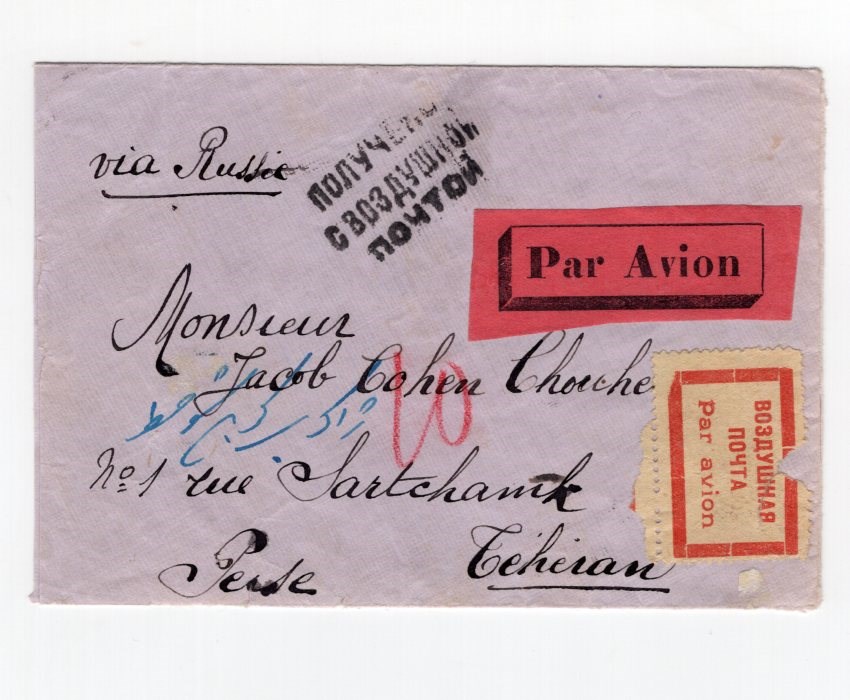 via Russie
ПОЛУЧЕНО
С ВОЗДУШНОЙ
ПОЧТОЙ
Par Avion
Monsieur
Jacob Cohen Chouche
10
No 1 rue Sartchamk
Téhéran
Perse
ВОЗДУШНАЯ
ПОЧТА
Par avion